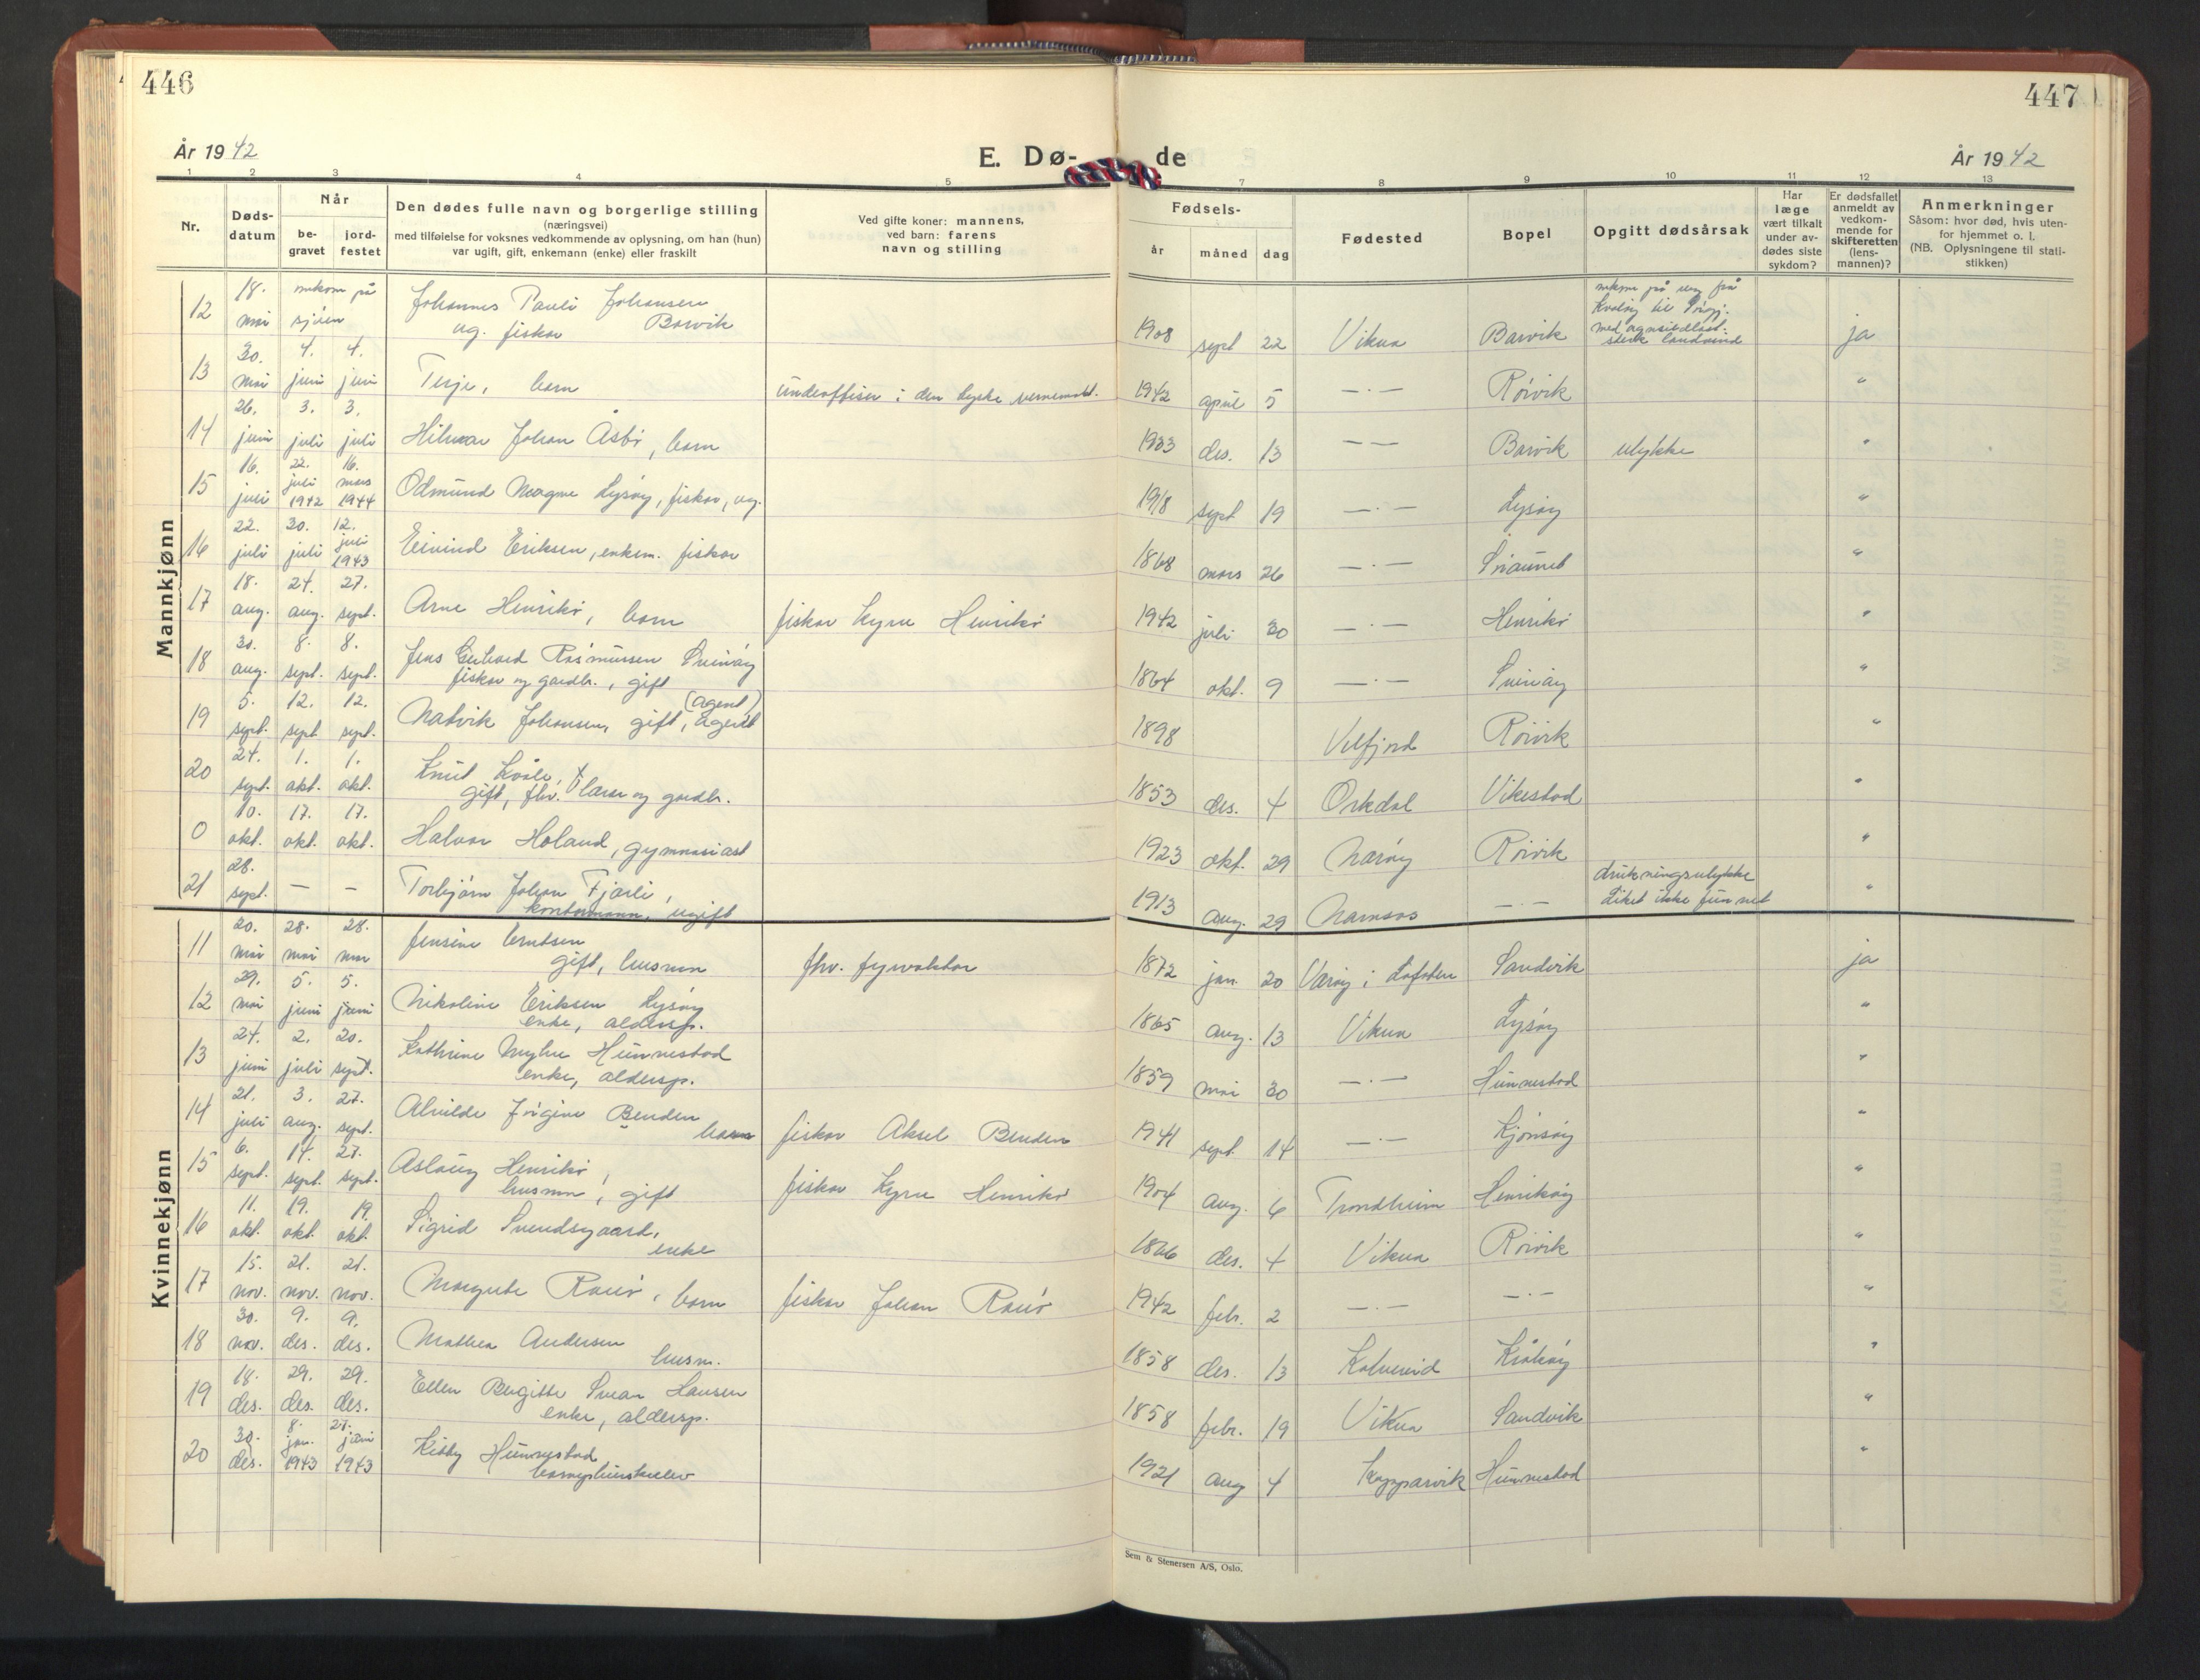 446
År 1942
E. Dø-
1 2 3 4 5
Nr.
Døds-
datum
Når
be-
gravet
jord-
festet
Den dødes fulle navn og borgerlige stilling
(næringsvei)
med tilføielse for voksnes vedkommende av oplysning, om han (hun)
var ugift, gift, enkemann (enke) eller fraskilt
Ved gifte koner: mannens,
ved barn: farens
navn og stilling
Mannkjønn
12 18. mai omkom på sjøen Johannes Pauli Johansen
ug. fisker Barvik
13 30. mai 4. juni 4. juni Terje, barn underoffiser i den tyske vernemakt.
14 26. juni 3. juli 3. juli Hilmar Johan Åsbø, barn
15 16. juli 22. juli 1942 16. mars 1944 Odmund Magne Lysøy, fisker, ug.
16 22. juli 30. juli 12. juli 1943 Eivind Eriksen, enkem. fisker
17 18. aug. 24. aug. 27. sept. Arne Henrikø, barn fisker Kyrre Henrikø
18 30. aug. 8. sept. 8. sept. Jens Gerhard Rasmussen Svinøy
fisker og gardbr., gift
19 5. sept. 12. sept. 12. sept. Natvik Johansen, gift, agent (agent)
20 24. sept. 1. okt. 1. okt. Knut Kvåle,
gift, fhv. lærer og gardbr.
0 10. okt. 17. okt. 17. okt. Halvor Holand, gymnasiast
21 28. sept. — — Torbjørn Johan Fjærli,
kontormann, ugift
Kvinnekjønn
11 20. mai 28. mai 28. mai Jensine Berntsen
gift, husmor fhv. fyrvokter
12 29. mai 5. juni 5. juni Nikoline Eriksen Lysøy
enke, aldersp.
13 24. juni 2. juli 20. sept. Kathrine Myhre Hunnestad
enke, aldersp.
14 21. juli 3. aug. 27. sept. Alvilde Jørgine Benden
barn fisker Aksel Benden
15 6. sept. 14. sept. 27. sept. Aslaug Henrikø,
husmor, gift fisker Kyrre Henrikø
16 11. okt. 19. okt. 19. okt. Sigrid Svendsgaard,
enke
17 15. nov. 21. nov. 21. nov. Margrete Ramø, barn fisker Johan Ramø
18 30. nov. 9. des. 9. des. Mathea Andersen
husm.
19 18. des. 29. des. 29. des. Ellen Birgitte Svean Hansen
enke, aldersp.
20 30. des. 8. jan. 1943 27. juni 1943 Kitty Hunnestad
447
År 1942
de
7 8 9 10 11 12 13
Fødsels-
år måned dag
Fødested
Bopel
Opgitt dødsårsak
Har
læge
vært tilkalt
under av-
dødes siste
sykdom?
Er dødsfallet
anmeldt av
vedkom-
mende for
skifteretten
(lens-
mannen)?
Anmerkninger
Såsom: hvor død, hvis uten-
for hjemmet o. l.
(NB. Oplysningene til stati-
stikken)
1908 sept 22 Vikna Barvik omkom på veg frå
med
sterk landvind ja
1942 april 5 —·— Rørvik "
1933 des. 13 —— Barvik ulykke "
1918 sept 19 —·— Lysøy "
1868 mars 26 —·— "
1942 juli 30 —·— Henrikø "
1864 okt. 9 —·— Svinøy "
1898 Velfjord Rørvik "
1853 des. 4 Orkdal Vikestad "
1923 okt. 29 Nærøy Rørvik "
1913 aug. 29 Namsos —·— drukningsulykke
Liket ikke funnet "
1872 jan. 20 Værøy i Lofoten Sandvik ja
1865 aug. 13 Vikna Lysøy "
1859 mai 30 —·— Hunnestad "
1941 sept 14 —·— Kjønsøy "
1904 aug. 6 Trondheim Henrikøy "
1866 des. 4 Vikna Rørvik "
1942 febr. 2 —·— —·— "
1858 des. 13 Kolvereid Kråkøy "
1858 febr. 19 Vikna Sandvik "
1921 aug 4 Kopparvik Hunnestad "
Sem & Stenersen A/S, Oslo.